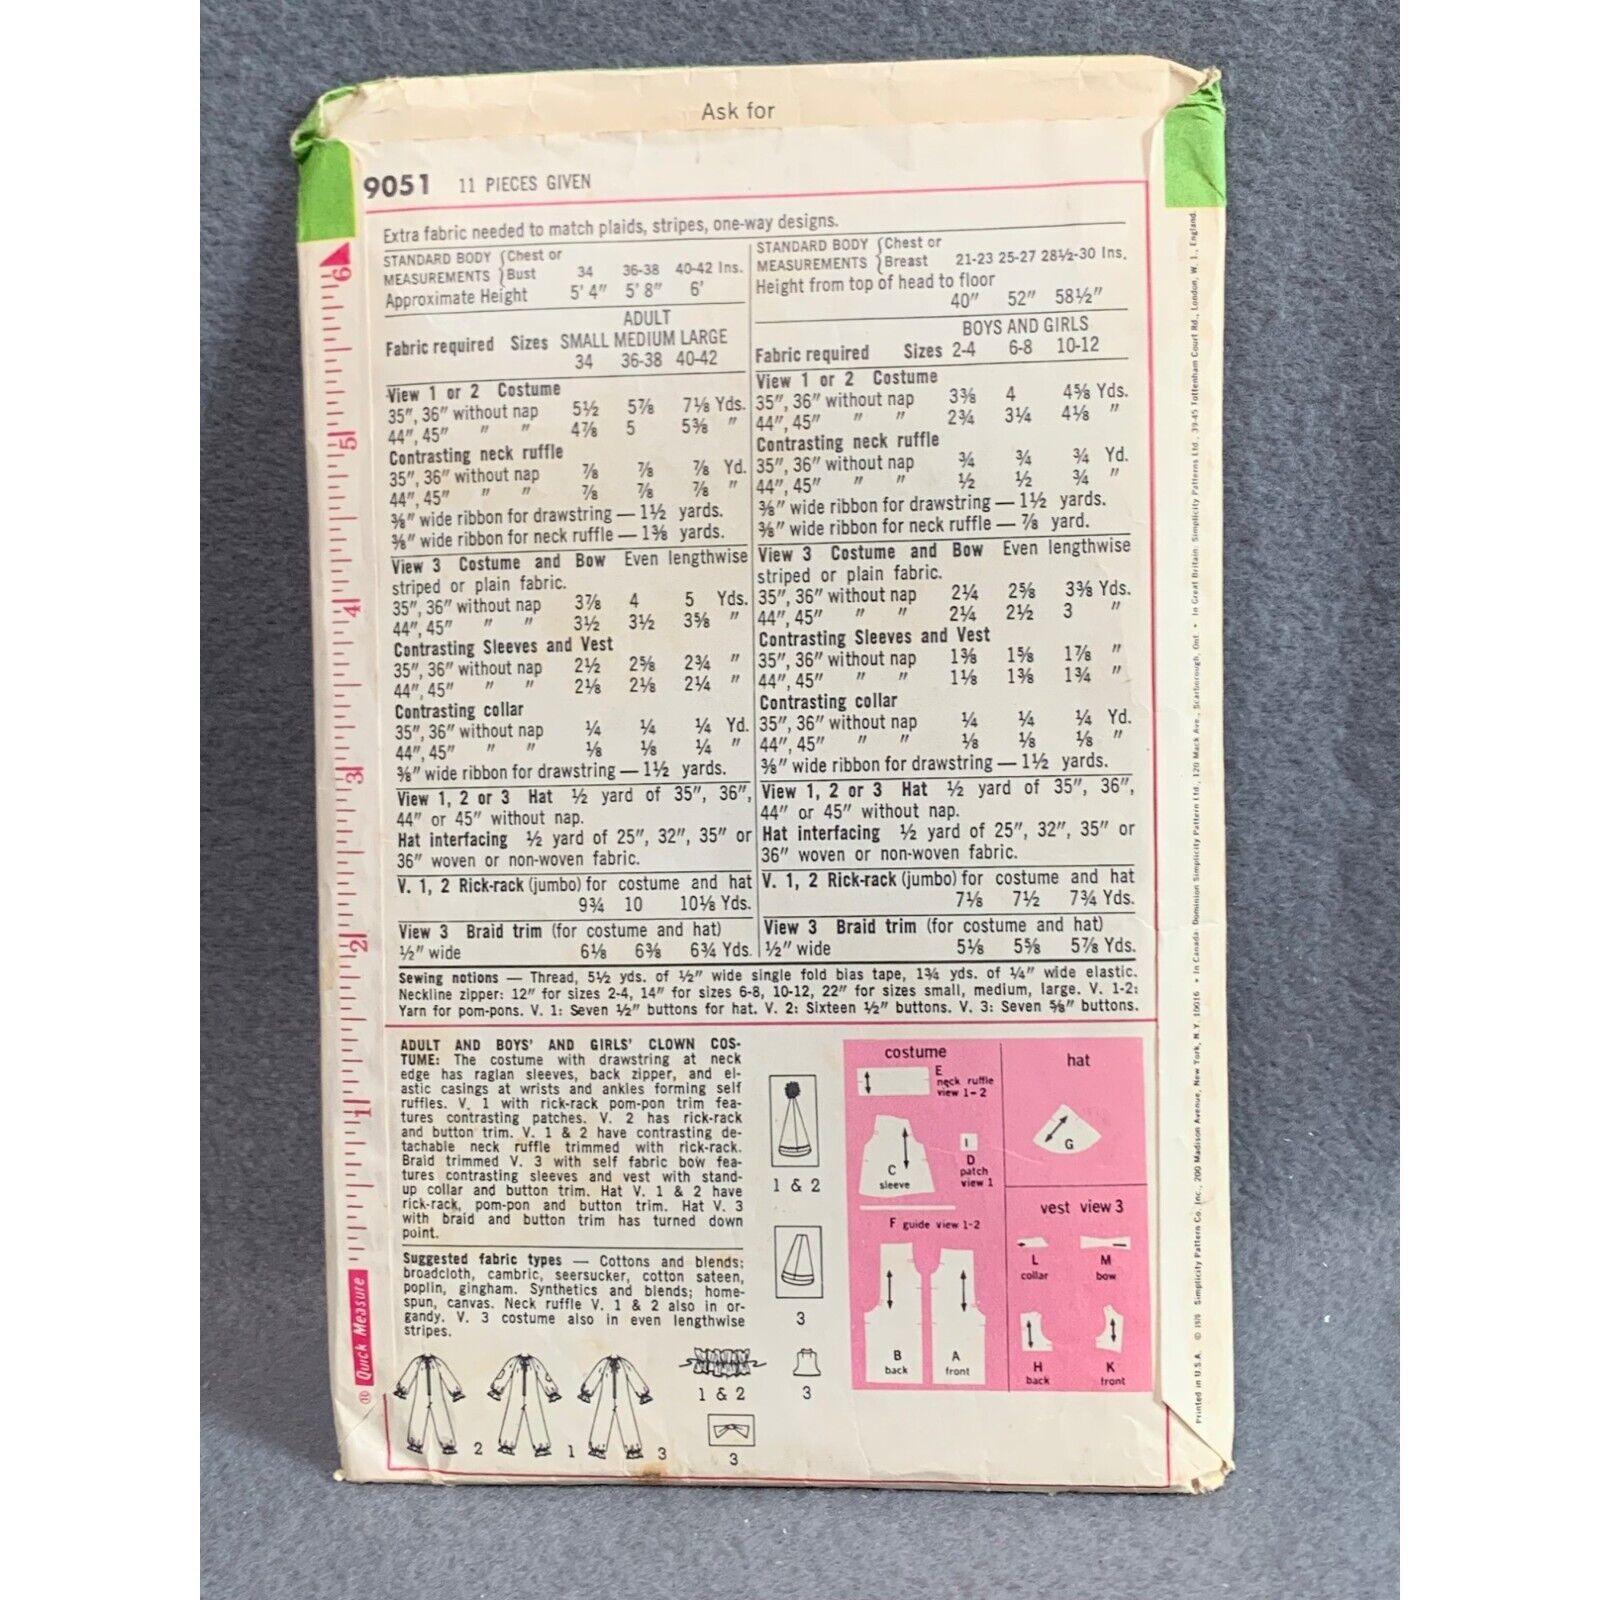 Ask for
9051 11 PIECES GIVEN
Extra fabric needed to match plaids, stripes, one-way designs.
STANDARD BODY { Chest or
MEASUREMENTS { Bust 34 36-38 40-42 Ins.
Approximate Height 5' 4" 5' 8" 6'
ADULT
Fabric required Sizes SMALL MEDIUM LARGE
34 36-38 40-42
View 1 or 2 Costume
35", 36" without nap 5½ 5⅞ 7⅛ Yds.
44", 45" " " 4⅞ 5 5⅜ "
Contrasting neck ruffle
35", 36" without nap ⅞ ⅞ ⅞ Yd.
44", 45" " " ⅞ ⅞ ⅞ "
⅜" wide ribbon for drawstring — 1½ yards.
⅜" wide ribbon for neck ruffle — 1⅜ yards.
View 3 Costume and Bow Even lengthwise
striped or plain fabric.
35", 36" without nap 3⅞ 4 5 Yds.
44", 45" " " 3½ 3½ 3⅝ "
Contrasting Sleeves and Vest
35", 36" without nap 2½ 2⅝ 2¾ "
44", 45" " " 2⅛ 2⅛ 2¼ "
Contrasting collar
35", 36" without nap ¼ ¼ ¼ Yd.
44", 45" " " ⅛ ⅛ ¼ "
⅜" wide ribbon for drawstring — 1½ yards.
View 1, 2 or 3 Hat ½ yard of 35", 36",
44" or 45" without nap.
Hat interfacing ½ yard of 25", 32", 35" or
36" woven or non-woven fabric.
V. 1, 2 Rick-rack (jumbo) for costume and hat
9¾ 10 10⅛ Yds.
View 3 Braid trim (for costume and hat)
½" wide 6⅛ 6⅜ 6¾ Yds.
STANDARD BODY { Chest or
MEASUREMENTS { Breast 21-23 25-27 28½-30 Ins.
Height from top of head to floor
40" 52" 58½"
BOYS AND GIRLS
Fabric required Sizes 2-4 6-8 10-12
View 1 or 2 Costume
35", 36" without nap 3⅜ 4 4⅝ Yds.
44", 45" " " 2¾ 3¼ 4⅛ "
Contrasting neck ruffle
35", 36" without nap ¾ ¾ ¾ Yd.
44", 45" " " ½ ½ ¾ "
⅜" wide ribbon for drawstring — 1½ yards.
⅜" wide ribbon for neck ruffle — ⅞ yard.
View 3 Costume and Bow Even lengthwise
striped or plain fabric.
35", 36" without nap 2¼ 2⅝ 3⅜ Yds.
44", 45" " " 2¼ 2½ 3 "
Contrasting Sleeves and Vest
35", 36" without nap 1⅜ 1⅝ 1⅞ "
44", 45" " " 1⅛ 1⅜ 1¾ "
Contrasting collar
35", 36" without nap ¼ ¼ ¼ Yd.
44", 45" " " ⅛ ⅛ ⅛ "
⅜" wide ribbon for drawstring — 1½ yards.
View 1, 2 or 3 Hat ½ yard of 35", 36",
44" or 45" without nap.
Hat interfacing ½ yard of 25", 32", 35" or
36" woven or non-woven fabric.
V. 1, 2 Rick-rack (jumbo) for costume and hat
7⅛ 7½ 7¾ Yds.
View 3 Braid trim (for costume and hat)
½" wide 5⅛ 5⅝ 5⅞ Yds.
Sewing notions — Thread, 5½ yds. of ½" wide single fold bias tape, 1¾ yds. of ¼" wide elastic.
Neckline zipper: 12" for sizes 2-4, 14" for sizes 6-8, 10-12, 22" for sizes small, medium, large. V. 1-2:
Yarn for pom-pons. V. 1: Seven ½" buttons for hat. V. 2: Sixteen ½" buttons. V. 3: Seven ⅝" buttons.
ADULT AND BOYS' AND GIRLS' CLOWN COS-
TUME: The costume with drawstring at neck
edge has raglan sleeves, back zipper, and el-
astic casings at wrists and ankles forming self
ruffles. V. 1 with rick-rack pom-pon trim fea-
tures contrasting patches. V. 2 has rick-rack
and button trim. V. 1 & 2 have contrasting de-
tachable neck ruffle trimmed with rick-rack.
Braid trimmed V. 3 with self fabric bow fea-
tures contrasting sleeves and vest with stand-
up collar and button trim. Hat V. 1 & 2 have
rick-rack, pom-pon and button trim. Hat V. 3
with braid and button trim has turned down
point.
Suggested fabric types — Cottons and blends;
broadcloth, cambric, seersucker, cotton sateen,
poplin, gingham. Synthetics and blends; home-
spun, canvas. Neck ruffle V. 1 & 2 also in or-
gandy. V. 3 costume also in even lengthwise
stripes.
2 1 3
1 & 2
3
1 & 2
3
3
costume
E
neck ruffle
view 1-2
C
sleeve
I
D
patch
view 1
F guide view 1-2
B
back
A
front
hat
G
vest view 3
L
collar
M
bow
H
back
K
front
6
5
4
3
2
1
Quick Measure
Printed in U.S.A. © 1970 Simplicity Pattern Co. Inc., 200 Madison Avenue, New York, N.Y. 10016 • In Canada: Dominion Simplicity Pattern Ltd., 120 Mack Ave., Scarborough, Ont. • In Great Britain: Simplicity Patterns Ltd., 39-45 Tottenham Court Rd., London, W. 1., England.